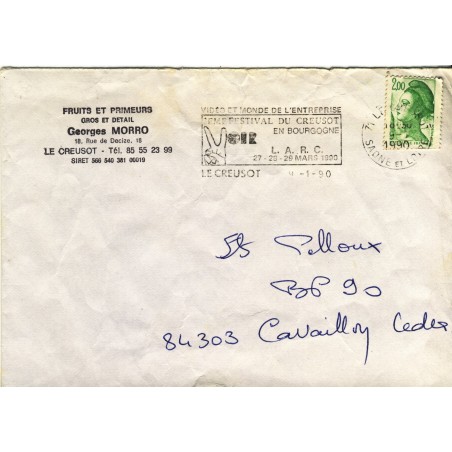 FRUITS ET PRIMEURS
GROS ET DETAIL
Georges MORRO
18, Rue de Decize, 18
LE CREUSOT - Tél. 85 55 23 99
SIRET 566 540 381 00019
VIDEO ET MONDE DE L'ENTREPRISE
FESTIVAL DU CREUSOT
EN BOURGOGNE
L. A. R. C.
27-28-29 MARS 1990
LE CREUSOT -1-90
2,00
1990
SAONE ET LOIRE
Ets Pelloux
BP 90
84303 Cavaillon Cedex